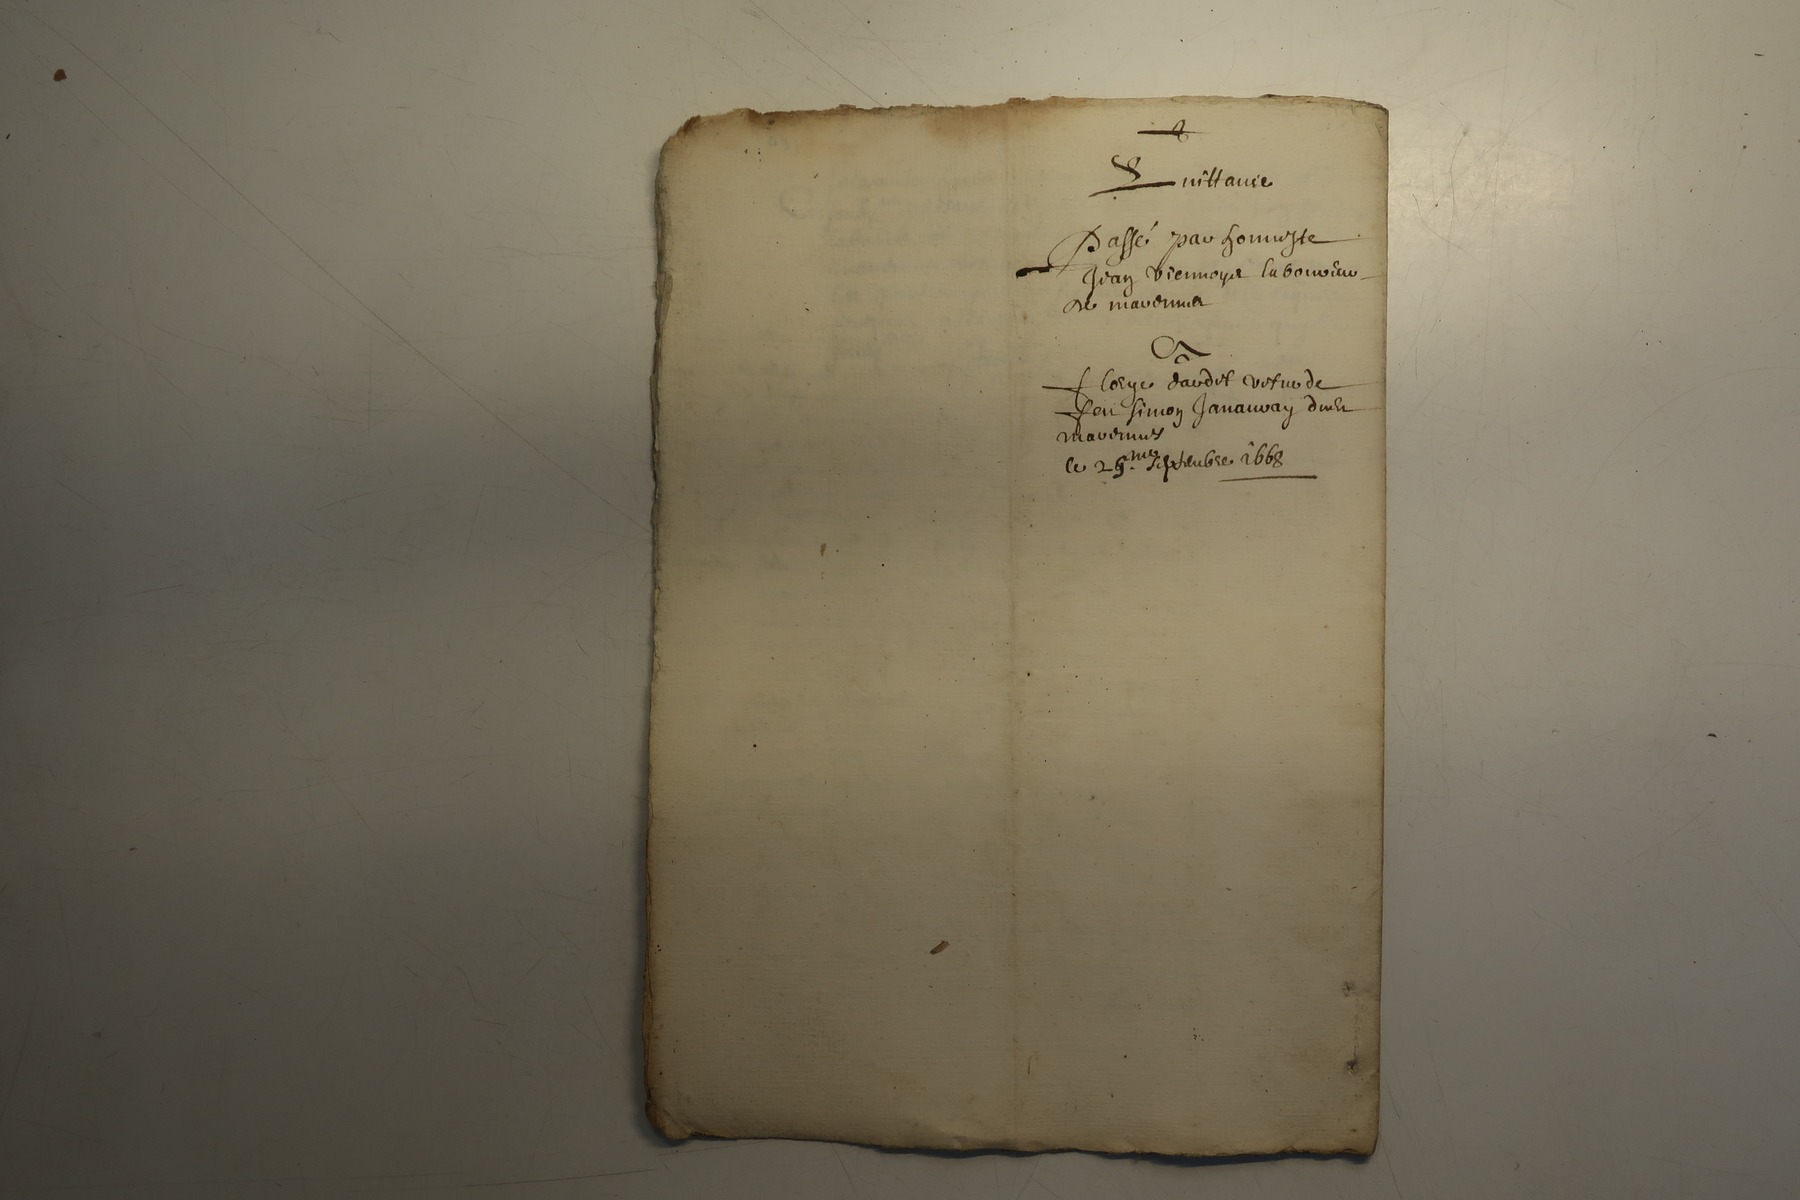 Quittance
Passé par honneste
Jean Viennoys laboureur
de mavenne
A
Cloeye daudit vefue de
feu Simon Janauray dud.
mavenne
le 25me septembre 1668